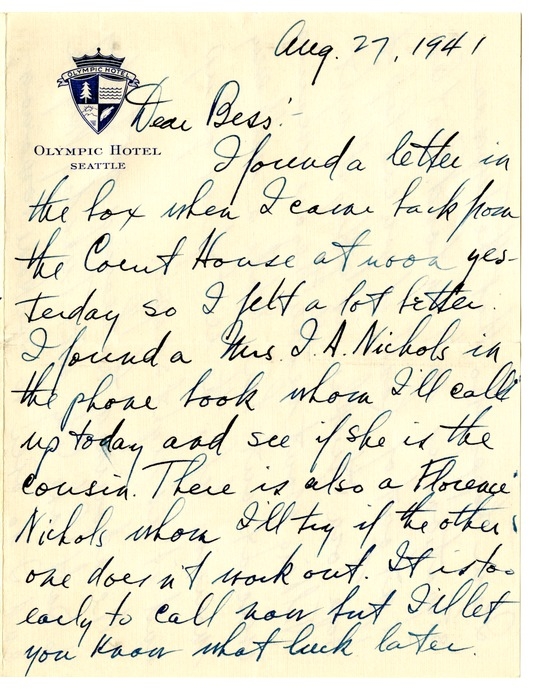 Aug. 27, 1941
OLYMPIC HOTEL
OLYMPIC HOTEL
SEATTLE
Dear Bess:-
I found a letter in
the box when I came back from
the Court House at noon yes-
terday so I felt a lot better.
I found a Mrs. I. A. Nichols in
the phone book whom I'll call
up today and see if she is the
cousin. There is also a Florence
Nichols whom I'll try if the other
one doesn't work out. It is too
early to call now but I'll let
you know what luck later.